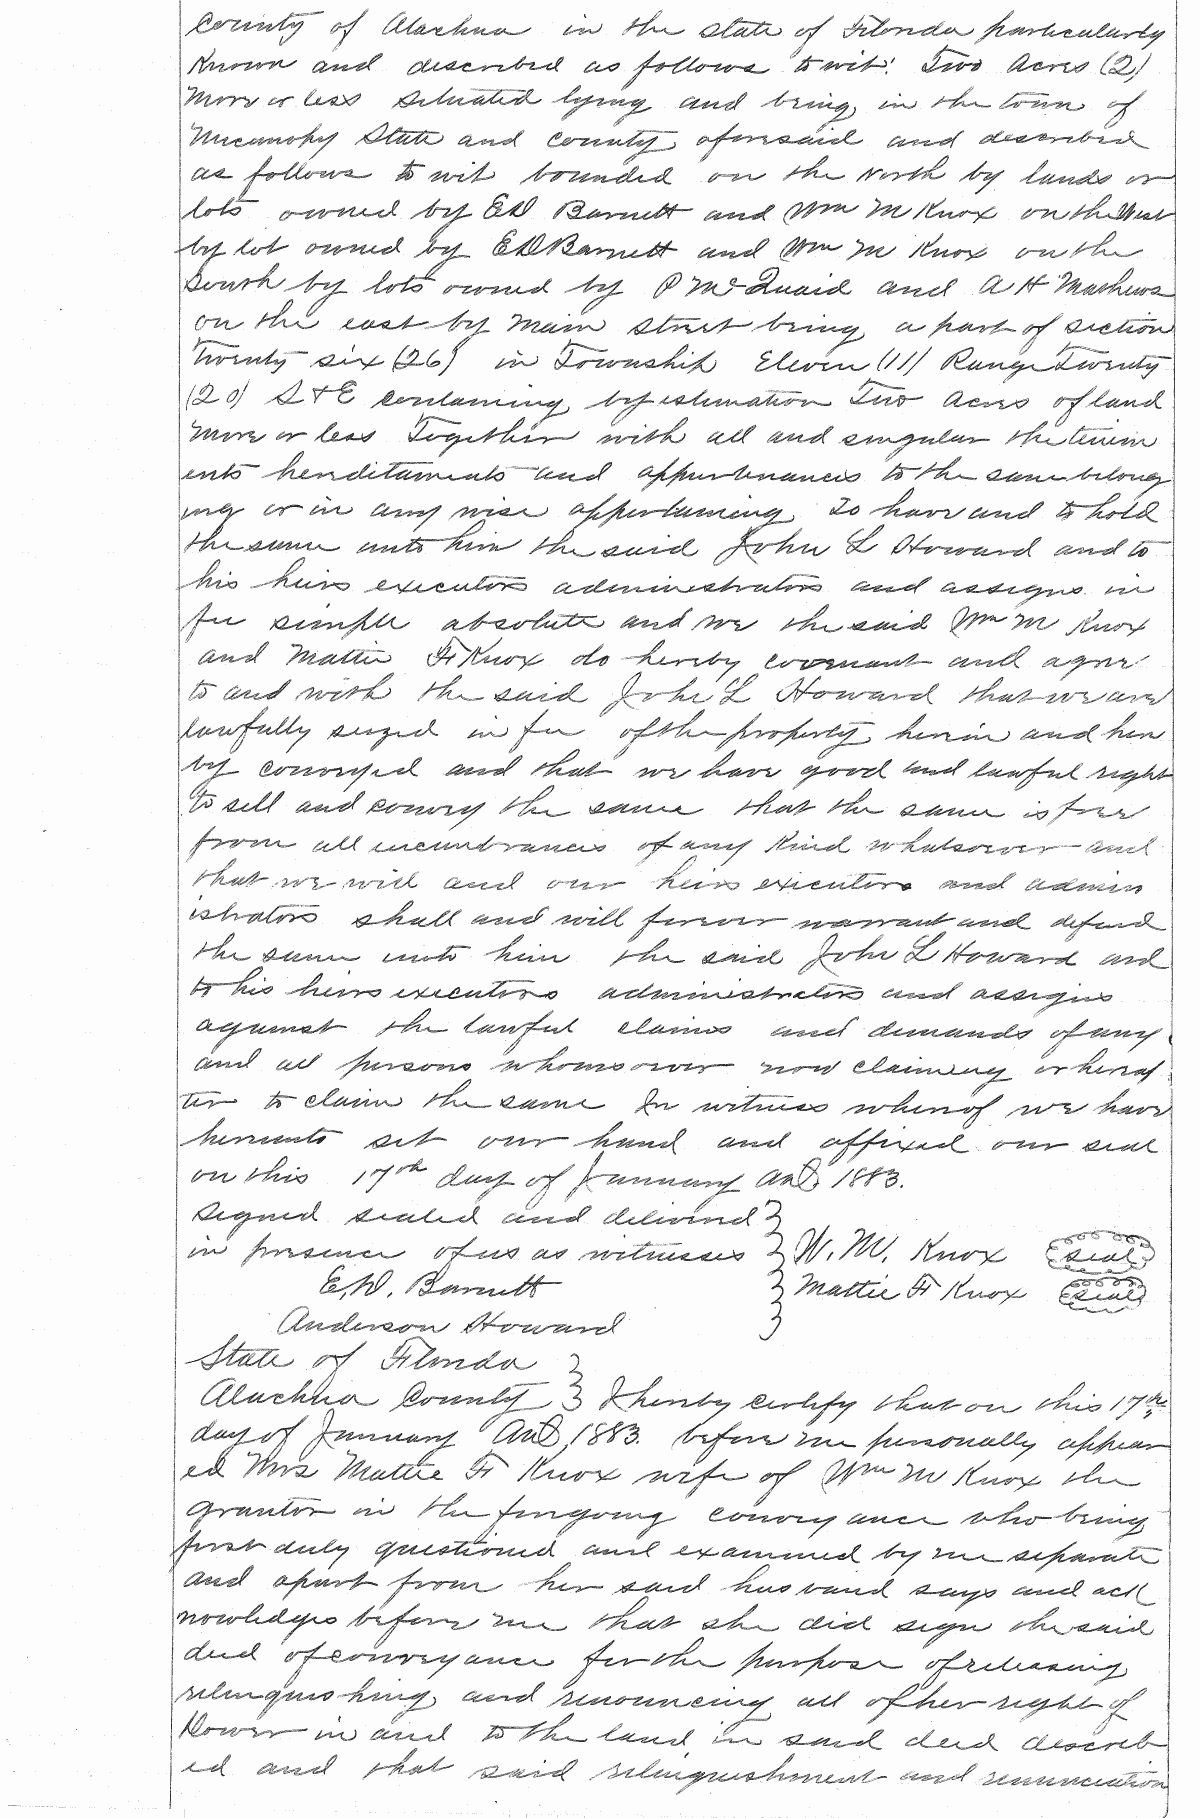 County of Alachua in the State of Florida particularly
Known and described as follows to wit: Two Acres (2)
More or less situated lying and being in the town of
Micanopy State and County aforesaid and described
as follows to wit bounded on the North by lands or
lots owned by E D Barnett and Wm M Knox on the West
by lot owned by E D Barnett and Wm M Knox on the
South by lots owned by P McQuaid and A H Mathews
on the east by Main Street being a part of section
Twenty six (26) in Township Eleven (11) Range Twenty
(20) S & E containing by estimation Two Acres of land
More or less Together with all and singular the tenem
ents hereditaments and appurtenances to the same belong
ing or in any wise appertaining To have and to hold
the same unto him the said John L Howard and to
his heirs executors administrators and assigns in
fee simple absolute and we the said Wm M Knox
and Mattie F Knox do hereby covenant and agree
to and with the said John L Howard that we are
lawfully seized in fee of the property herein and here
by conveyed and that we have good and lawful right
to sell and convey the same that the same is free
from all incumbrances of any Kind whatsoever and
that we will and our heirs executors and admin
istrators shall and will forever warrant and defend
the same unto him the said John L Howard and
to his heirs executors administrators and assigns
against the lawful claims and demands of any
and all persons whomsoever now claiming or hereaf
ter to claim the same In witness whereof we have
hereunto set our hand and affixed our seal
on this 17th day of January AD 1883.
Signed sealed and delivered }
in presence of us as witnesses } W. M. Knox (seal)
E. D. Barnett } Mattie F Knox (seal)
Anderson Howard }
State of Florida }
Alachua County } I hereby certify that on this 17th
day of January AD 1883. before me personally appear
ed Mrs Mattie F Knox wife of Wm M Knox the
grantor in the foregoing conveyance who being
first duly questioned and examined by me separate
and apart from her said husband says and ack
nowledges before me that she did sign the said
deed of conveyance for the purpose of releasing
relinquishing and renouncing all of her right of
Dower in and to the land in said deed describ
ed and that said relinquishment and renunciation